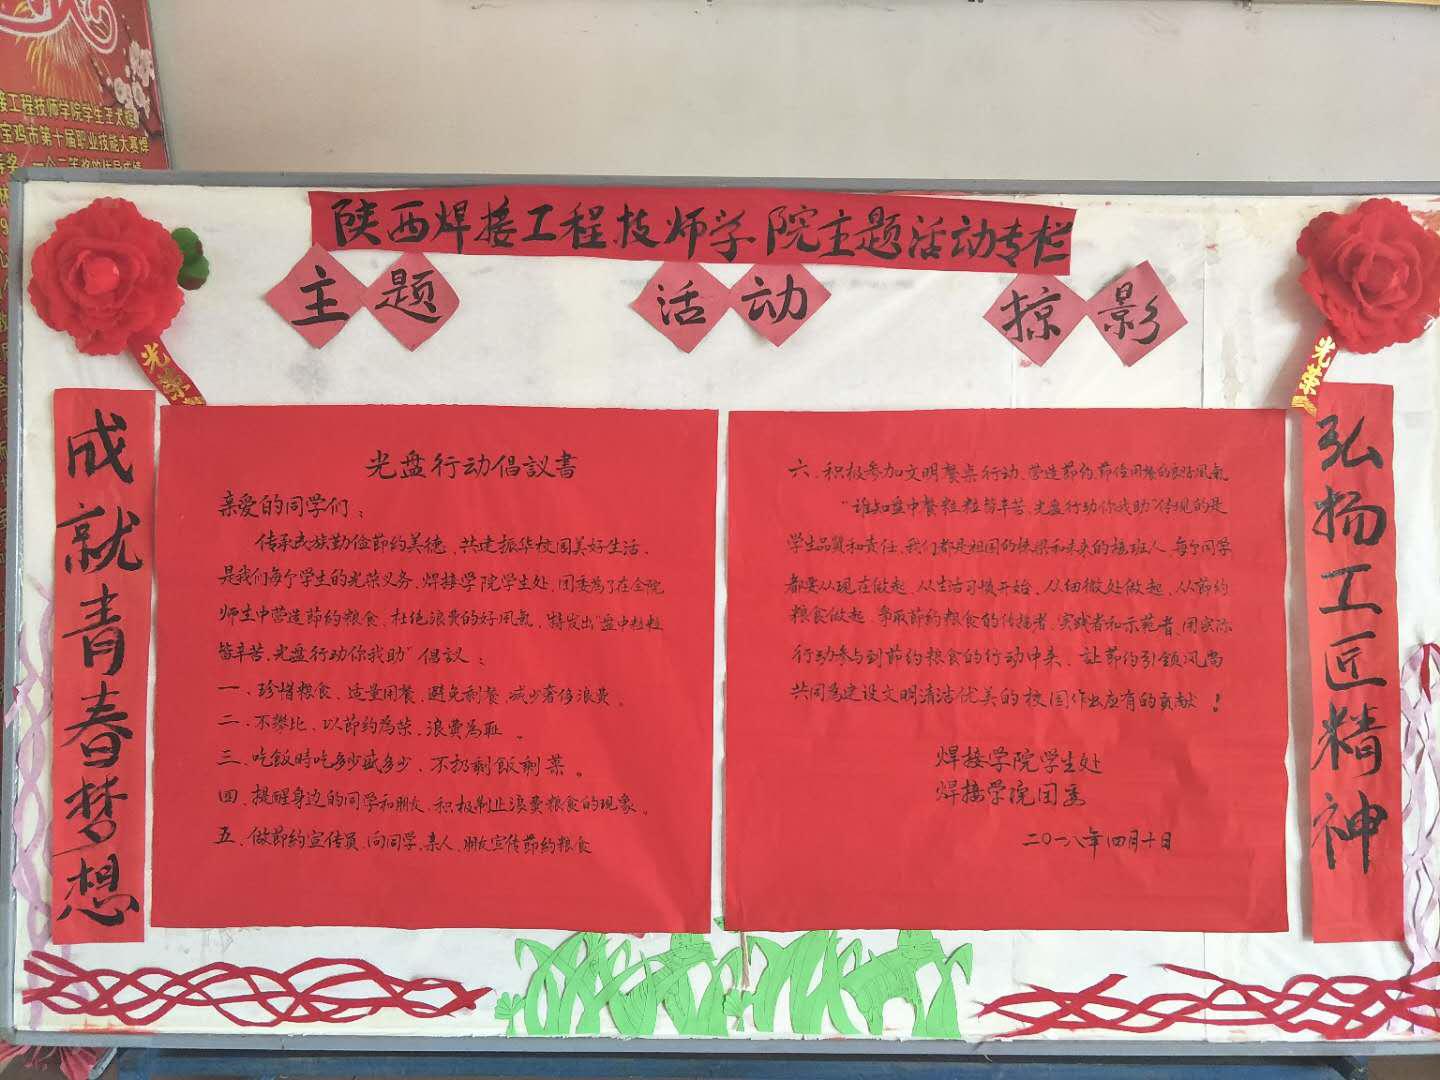 接工程技师学院学生王太辉
宝鸡市第十届职业技能大赛焊
陕西焊接工程技师学院主题活动专栏
主题 活动 掠影
光荣
光荣
成就青春梦想
光盘行动倡议書
亲爱的同学们：
传承民族勤俭節约美德、共建振华校园美好生活、
是我们每个学生的光荣义务、焊接学院学生处、团委為了在全院
师生中营造節约粮食、杜绝浪费的好风氣、特发出“盘中粒粒
皆辛苦、光盘行动你我助”倡议：
一、珍惜粮食、适量用餐、避免剩餐、减少奢侈浪费。
二、不攀比、以節约為荣、浪费為耻。
三、吃飯時吃多少盛多少、不扔剩飯剩菜。
四、提醒身边的同学和朋友、积极制止浪费粮食的现象。
五、做節约宣传员、向同学、亲人、朋友宣传節约粮食
六、积极参加文明餐桌行动、营造節约、節俭用餐的良好风氣
“谁知盘中餐粒粒皆辛苦、光盘行动你我助”体现的是
学生品質和责任、我们都是祖国的栋梁和未来的接班人、每个同学
都要从现在做起、从生活习惯开始、从细微处做起、从節约
粮食做起、争取節约粮食的传播者、实践者和示范者、用实际
行动参与到節约粮食的行动中来、让節约引领风尚
共同為建设文明清洁优美的校园作出应有的贡献！
焊接学院学生处
焊接学院团委
二〇一八年四月十日
弘扬工匠精神